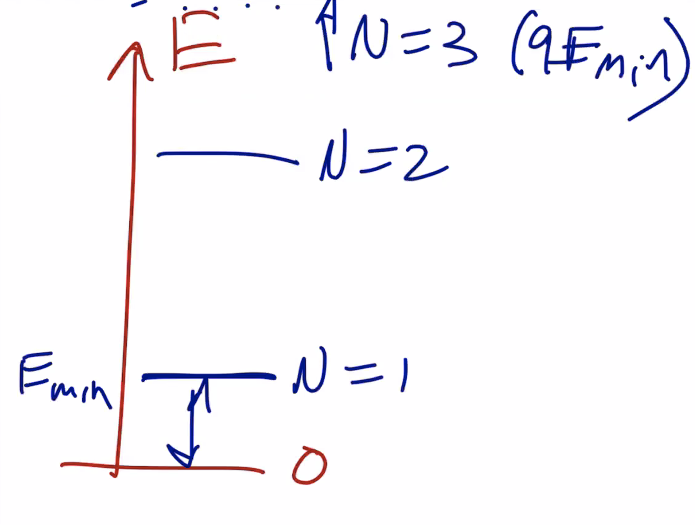 E N=3 (9E_min)
N=2
E_min N=1
0